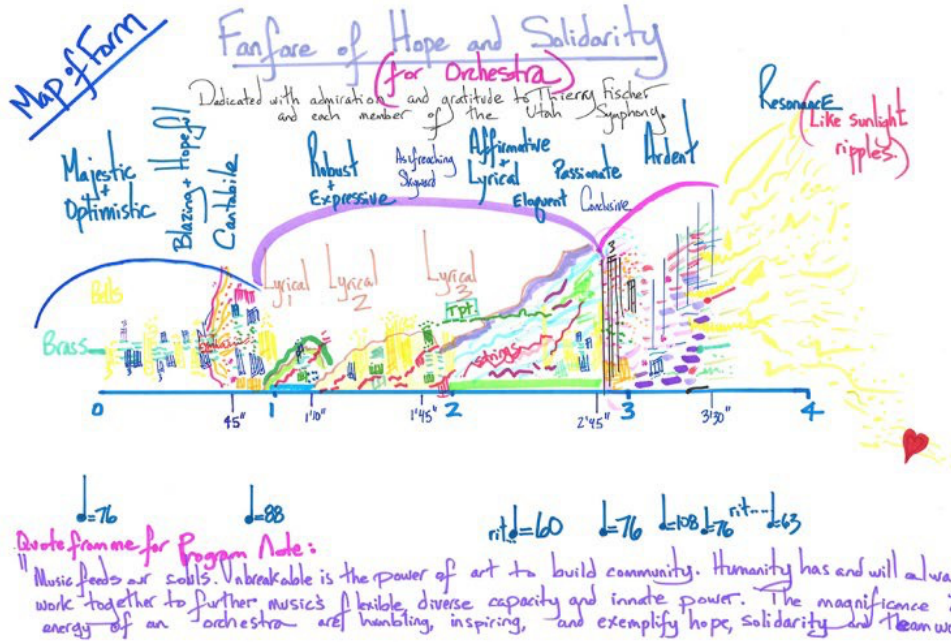 Map of Form
Fanfare of Hope and Solidarity
(for Orchestra)
Dedicated with admiration and gratitude to Thierry Fischer
and each member of the Utah Symphony.
Majestic
+
Optimistic
Blazing + Hopeful
Cantabile
Robust
+
Expressive
As if reaching
Skyward
Affirmative
+
Lyrical
Eloquent
Passionate
Conclusive
Ardent
ResonancE
(Like sunlight
ripples.)
Bells
Brass
Lyrical
1
Lyrical
2
Lyrical
3
Tpt.
strings
3
0
45"
1
1'10"
1'45"
2
2'45"
3
3'30"
4
=76
=88
rit. =60
=76
=108
=76
rit---- =63
Quote from me for Program Note:
"Music feeds our souls. Unbreakable is the power of art to build community. Humanity has and will
work together to further music's flexible, diverse capacity and innate power. The magnificance
energy of an orchestra are humbling, inspiring, and exemplify hope, solidarity and